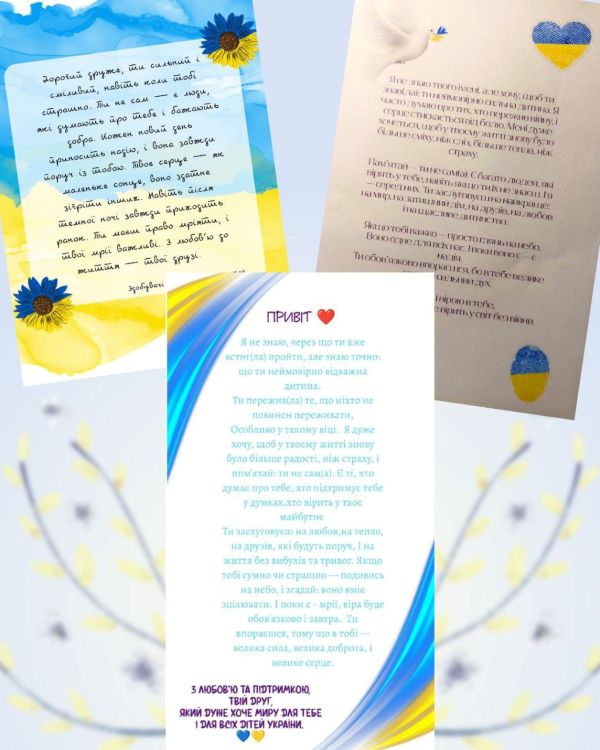 Дорогий друже, ти сильний і
сміливий, навіть коли тобі
страшно. Ти не сам — є люди,
які думають про тебе і бажають
добра. Кожен новий день
приносить надію, і вона завжди
поруч із тобою. Твоє серце — як
маленьке сонце, воно здатне
зігріти інших. Навіть після
темної ночі завжди приходить
ранок. Ти маєш право мріяти, і
твої мрії важливі. З любов'ю до
життя — твої друзі.
Я не знаю твого імені, але хочу, щоб ти
знав(ла): ти неймовірно сильна дитина. Я
часто думаю про тих, хто пережив війну, і
серце стискається від болю. Мені дуже
хочеться, щоб у твоєму житті знову було
більше сміху, ніж сліз, більше тепла, ніж
страху.
Пам'ятай — ти не сам(а). Є багато людей, які
вірять у тебе, навіть якщо ти їх не знаєш. І я
— серед них. Ти заслуговуєш на найкраще:
на мир, на затишний дім, на друзів, на любов
і на щасливе дитинство.
Якщо тобі важко — просто глянь на небо.
Воно одне для всіх нас. І поки воно є — є
надія.
Ти обов'язково впораєшся, бо в тебе велике
сильний дух.
і вірою в тебе,
вірить у світ без війни.
ПРИВІТ ❤️
Я не знаю, через що ти вже
встиг(ла) пройти, але знаю точно:
що ти неймовірно відважна
дитина.
Ти пережив(ла) те, що ніхто не
повинен переживати,
Особливо у такому віці. Я дуже
хочу, щоб у твоєму житті знову
було більше радості, ніж страху, і
ппм'ятай: ти не сам(а). Є ті, хто
думає про тебе, хто підтримує тебе
у думках,хто вірить у твоє
майбутнє
Ти заслуговуєш на любов,на тепло,
на друзів, які будуть поруч, І на
життя без вибухів та тривог. Якщо
тобі сумно чи страшно — подивись
на небо, і згадай: воно вміє
зцілювати. І поки є - мрії, віра буде
обов'язково і завтра. Ти
впораєшся, тому що в тобі —
велика сила, велика доброта, і
велике серце.
З ЛЮБОВ'Ю ТА ПІДТРИМКОЮ,
ТВІЙ ДРУГ,
ЯКИЙ ДУЖЕ ХОЧЕ МИРУ ДЛЯ ТЕБЕ
І ДЛЯ ВСІХ ДІТЕЙ УКРАЇНИ.
💙💛